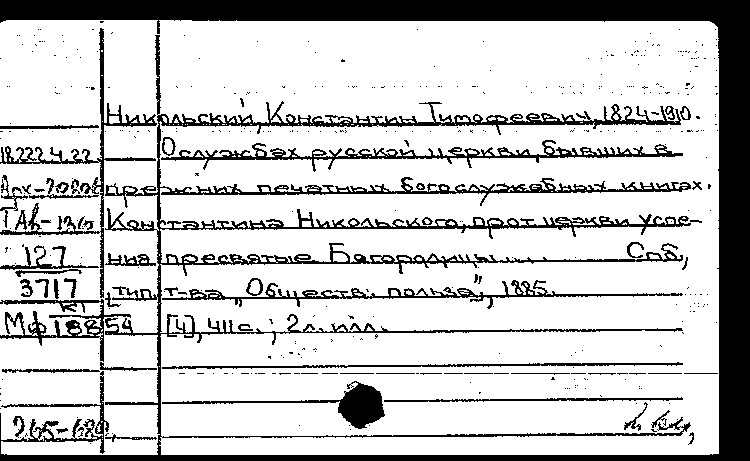 Никольский, Константин Тимофеевич, 1824-1910.
18.222.4.22. О службах русской церкви, бывших в
прежних печатных богослужебных книгах.
Константина Никольского, прот. церкви успе-
127 ния пресвятые Багородицы.... Спб,
3717 , тип. т-ва „Обществ. польза", 1885.
Мф 18854 [4], 411 с.; 2 л. илл.
265-680,